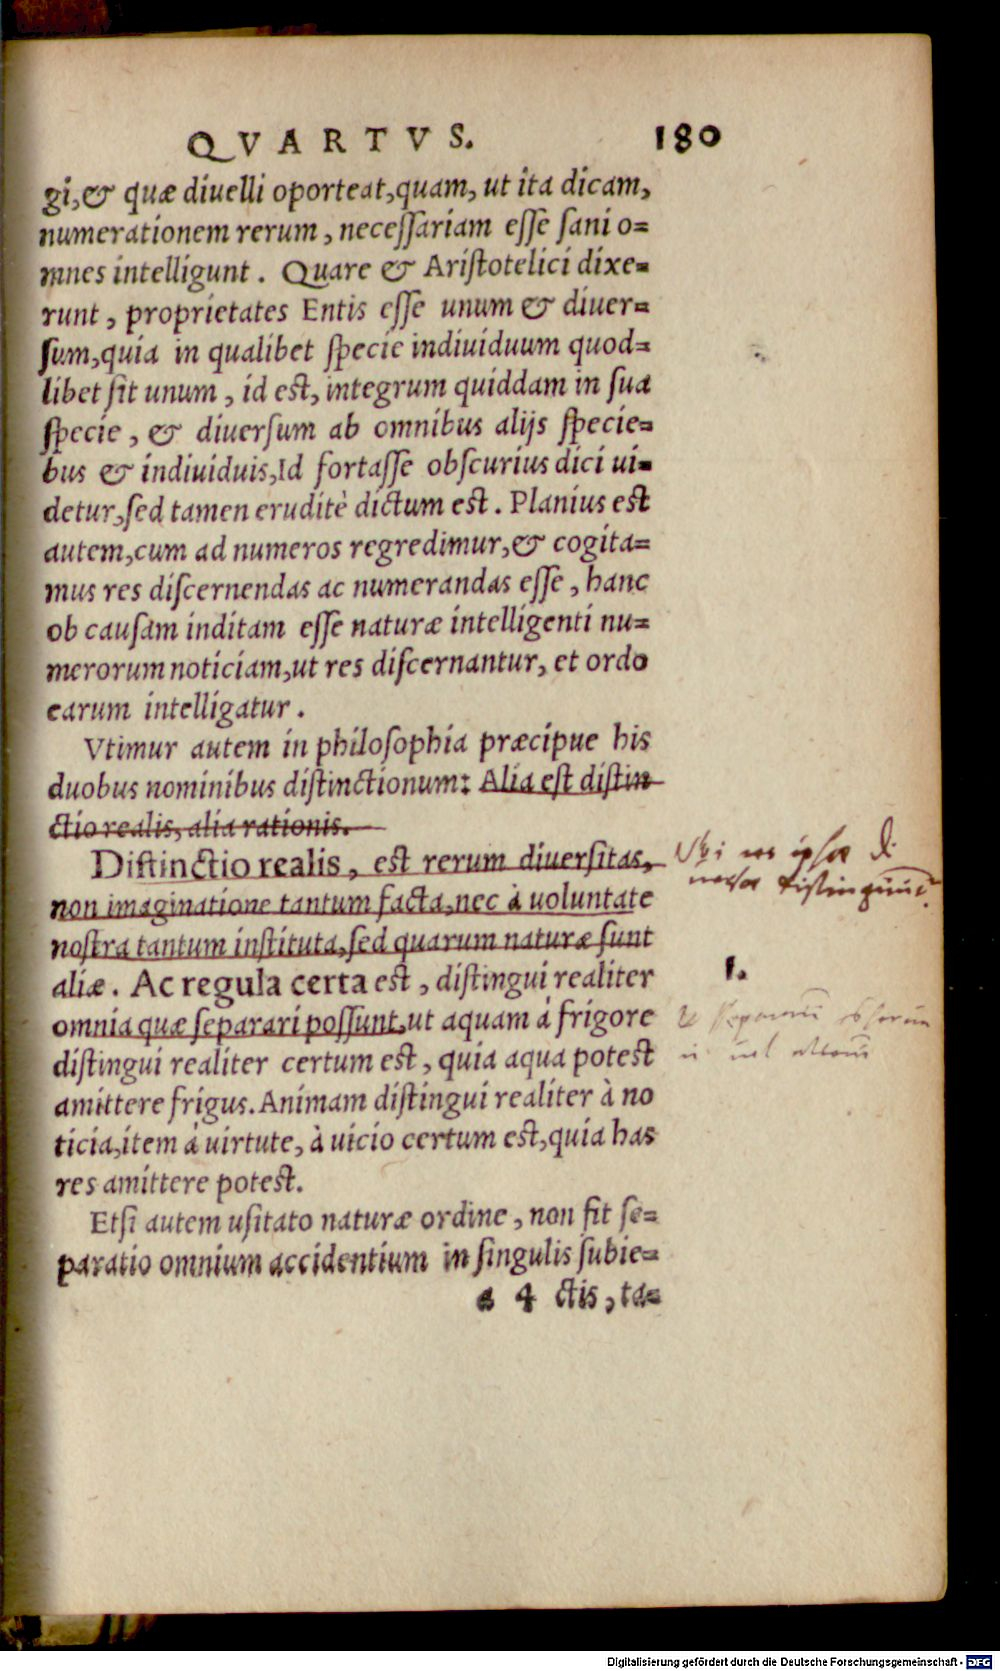 QVARTVS. 180
gi,& quæ diuelli oporteat,quam, ut ita dicam,
numerationem rerum, necessariam esse sani o=
mnes intelligunt. Quare & Aristotelici dixe=
runt, proprietates Entis esse unum & diuer=
sum,quia in qualibet specie indiuiduum quod=
libet sit unum, id est, integrum quiddam in sua
specie, & diuersum ab omnibus alijs specie=
bus & indiuiduis,Id fortasse obscurius dici ui=
detur,sed tamen eruditè dictum est. Planius est
autem,cum ad numeros regredimur,& cogita=
mus res discernendas ac numerandas esse, hanc
ob causam inditam esse naturæ intelligenti nu=
merorum noticiam,ut res discernantur, et ordo
earum intelligatur.
Vtimur autem in philosophia præcipue his
duobus nominibus distinctionum: Alia est distin
ctio realis, alia rationis.
Distinctio realis, est rerum diuersitas,
non imaginatione tantum facta,nec à uoluntate
nostra tantum instituta,sed quarum naturæ sunt
aliæ. Ac regula certa est, distingui realiter
omnia quæ separari possunt,ut aquam à frigore
distingui realiter certum est, quia aqua potest
amittere frigus. Animam distingui realiter à no
ticia,item à uirtute, à uicio certum est,quia has
res amittere potest.
Etsi autem usitato naturæ ordine, non fit se=
paratio omnium accidentium in singulis subie=
a 4 ctis, ta=
1.
Digitalisierung gefördert durch die Deutsche Forschungsgemeinschaft - DFG